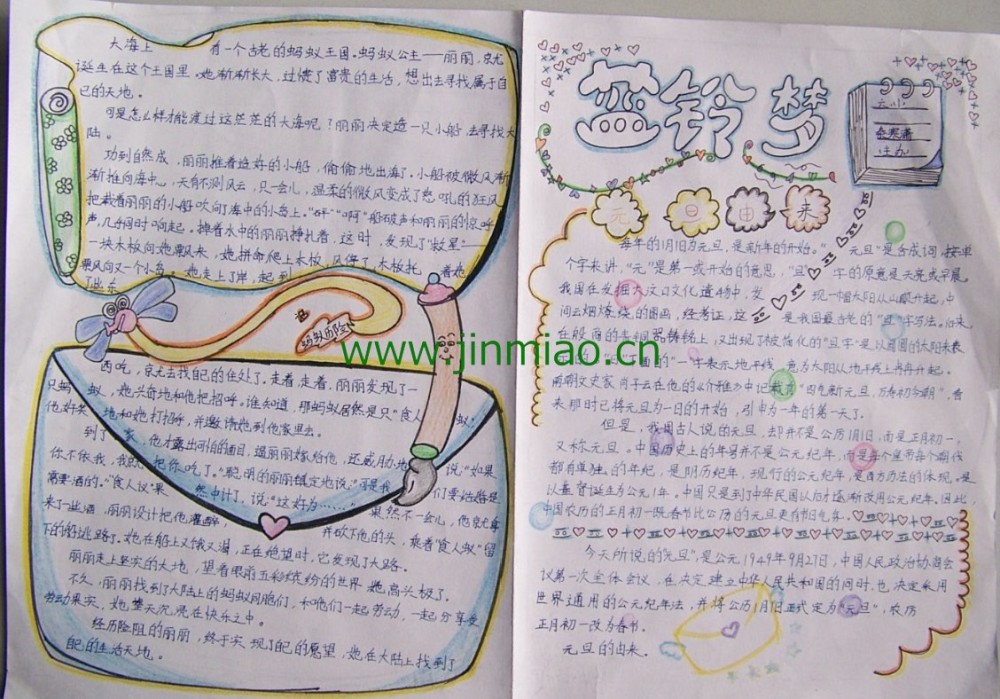 大海上 有一个古老的蚂蚁王国。蚂蚁公主——丽丽,就
诞生在这个王国里。她渐渐长大,过惯了富贵的生活,想出去寻找属于自
己的天地。
可是怎么样才能渡过这茫茫的大海呢?丽丽决定造一只小船,去寻找大
陆。
功到自然成,丽丽推着造好的小船,偷偷地出海了。小船被微风渐
渐推向海中。天有不测风云,只一会儿,温柔的微风变成了怒吼的狂风
把载着丽丽的小船吹向了海中的小岛上。"砰""啊"船破声和丽丽的惊呼
声,几乎同时响起。掉落水中的丽丽挣扎着,这时,发现了"救星"——
一块木板向她飘来,她拼命爬上木板,风停了,木板托 着她
乘风向又一个小岛。她走上了岸,起到
了出东
蚂蚁历险
西吃,就先去找自己的住处了。走着,走着,丽丽发现了一
只蚂 蚁,她兴奋地和他把招呼。谁知道,那蚂蚁居然是只"食人 蚁!
他好笑 地和她打招呼,并邀请她到他家里去。
到了 家,他才露出可怕的面目,逼丽丽嫁给他,还威胁地 说:"如果
你不依我,我就 把你吃了。"聪明的丽丽镇定地说:"可是我 们要结婚是
需要酒的。"食人蚁"果 然中计了,说:"这好办……" 果然不一会儿,他就拿
来了些酒,丽丽设计把他灌醉, 并砍下他的头,乘着"食人蚁"留
下的船逃路了。她在船上又饿又渴,正在绝望时,它发现了大路。
丽丽走上坚实的大地,望着眼前五彩缤纷的世界,她高兴极了。
不久,丽丽找到了大陆上的蚂蚁同胞们,和他们一起劳动,一起分享受
劳动果实,她整天沉浸在快乐之中。
经历险阻的丽丽,终于实现了自己的愿望,她在大陆上找到了
自己的生活天地。
www.jinmiao.cn
蓝铃梦
云小
主办
元旦由来
每年的1月1日为元旦,是新年的开始。" 元旦"是合成词,按单
个字来讲,"元"是第一或开始的意思,"旦" 字的原意是天亮或早晨。
我国在发掘大汶口文化遗物中,发 现一幅太阳从山巅升起,中
间云烟燎绕的图画,经考证,这 是我国最古老的"旦"字写法。后来,
在殷商的青铜器铸铭上,又出现了被简化的"旦字"是以圆圆的太阳来表
的"一"字表示地平线,意为太阳从地平线上冉冉升起。
南朝文史家肖子云在他的《介雅》中记载为"四气新元旦,万寿初今朝",看
来那时已将元旦为一日的开始,引申为一年的第一天了。
但是,我国古人说的元旦,却并不是公历1月1日,而是正月初一,
又称元旦。中国历史上的年号并不是公元纪年,而是每个皇帝每个朝代
都有单独的。年纪,是阴历纪年,现行的公元纪年,是西方历法的体现,是
以基督诞生为公元1年。中国只是到了中华民国以后才逐渐改用公元纪年。因此,
中国农历的正月初一既春节比公历的元旦更有节日气氛。
今天所说的"元旦",是公元1949年9月27日,中国人民政治协商会
议第一次全体会议,在决定建立中华人民共和国的同时,也决定采用
世界通用的公元纪年法,并将公历1月1日正式定为"元旦",农历
正月初一改为春节。
元旦的由来。